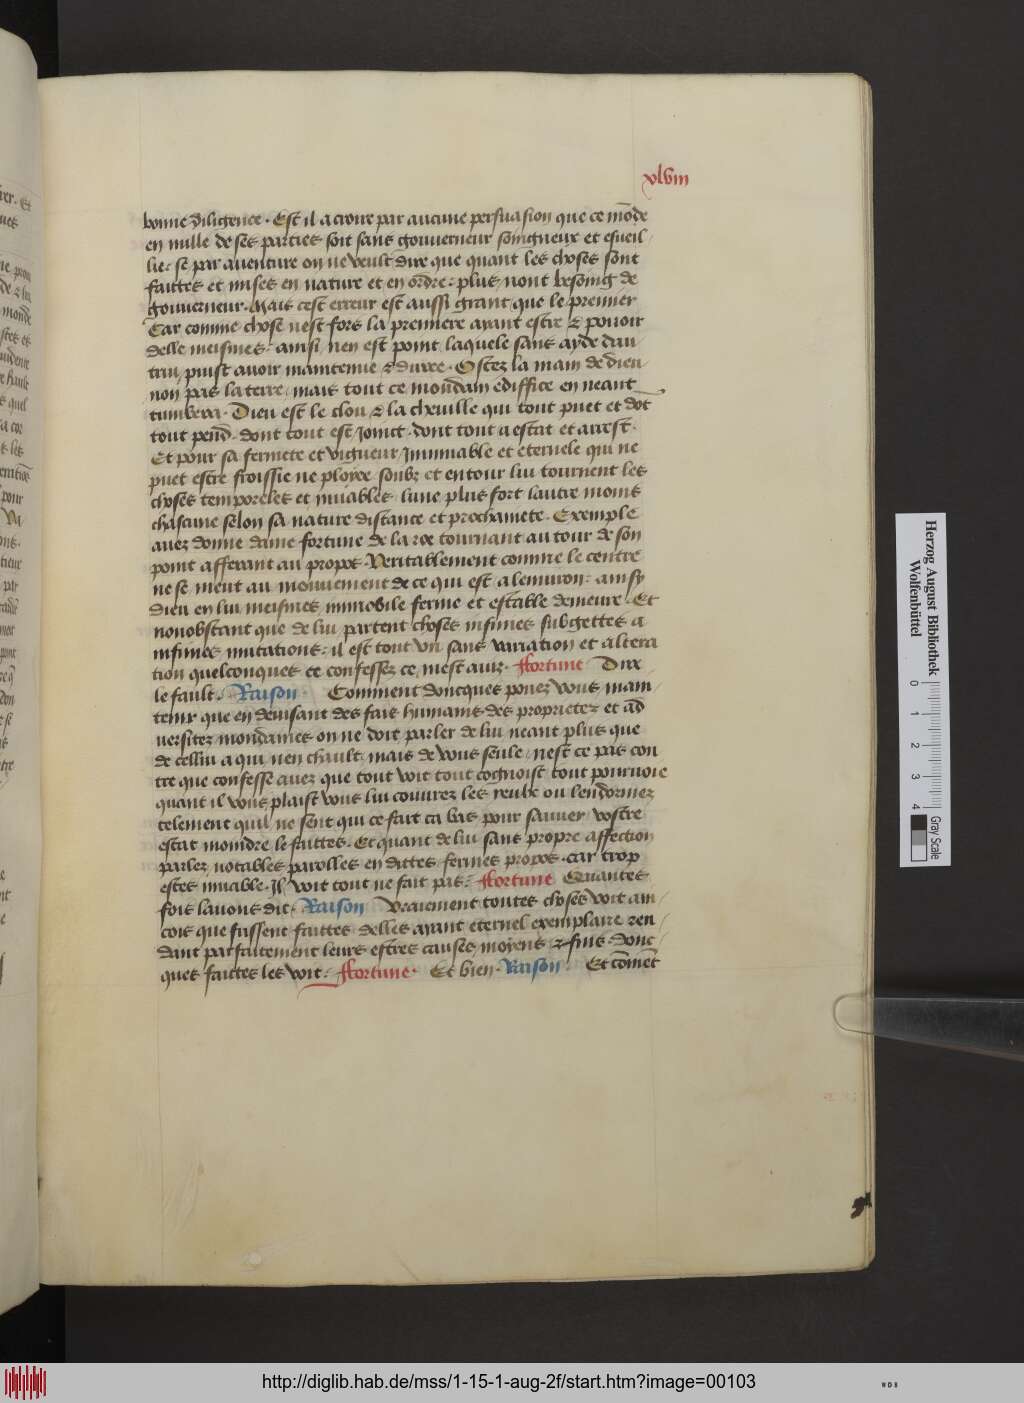 xlviii
bonne diligence. Est il a croire par aucune persuasion que ce mōde
en nulle de ses parties soit sans gouverneur soingneux et esueil
lie: se par auenture on ne veult dire que quant les choses sont
faittes et mises en nature et en ordre: plus nont besoing de
gouuerneur. Mais cest erreur est aussi grant que le premier
Car comme chose nest fors la premiere ayant estre & pouoir
delle meismes: ainsi nen est point laquele sans ayde dau
truy puist auoir maintenue & duree. Ostez la main de dieu
non pas la terre, mais tout ce mondain ediffice en neant
tumbera. Dieu est le clou & la cheuille qui tout puet et dōt
tout pend. dont tout est joinct. dont tout a estat et arrest.
Et pour sa fermete et vigueur jmmuable et eternele qui ne
puet estre froissie ne ployee soubz et entour lui tournent les
choses temporeles et muables lune plus fort lautre moins
chascune selon sa nature distance et prochainete. Exemple
auez donne dame fortune de la roe tournant au tour de son
point afferant au propos. Veritablement comme le centre
ne se meut au mouuement de ce qui est alenuiron: ainsy
dieu en lui meismes immobile ferme et estable demeure. Et
nonobstant que de lui partent choses infimes subgettes a
infimes mutations: il est tout vn sans variation et altera
tion quelconques ce confessez ce mest auiz. ffortune Dire
le fault. Raison. Comment doncques ponez vous main
tenir que en deuisant des fais humains des proprietez et ad
uersitez mondaines on ne doit parler de lui neant plus que
de cellui a qui nen chault, mais de vous seule, nest ce pas con
tre que confesse auez que tout voit tout cognoist tout pouruoie
quant il vous plaist vous lui couurez les yeulx ou lendormez
telement quil ne sent qui ce fait ca bas pour sauuer vostre
estat moindre le faittes. Et quant de lui sans propre affection
parlez notables parolles en dittes fermes propos. car trop
estes muable. Il voit tout ne fait pas: ffortune Quantes
fois lauons dit. Raison Vraiement toutes choses voit ain
cois que fussent faittes delles ayant eternel exemplaire ren
dant parfaitement leurs estres causes moyens & fins. donc
ques faittes les voit: ffortune. Et bien. Raison. Et cōmēt
Herzog August Bibliothek
Wolfenbüttel
0 1 2 3 4
Gray Scale
http://diglib.hab.de/mss/1-15-1-aug-2f/start.htm?image=00103